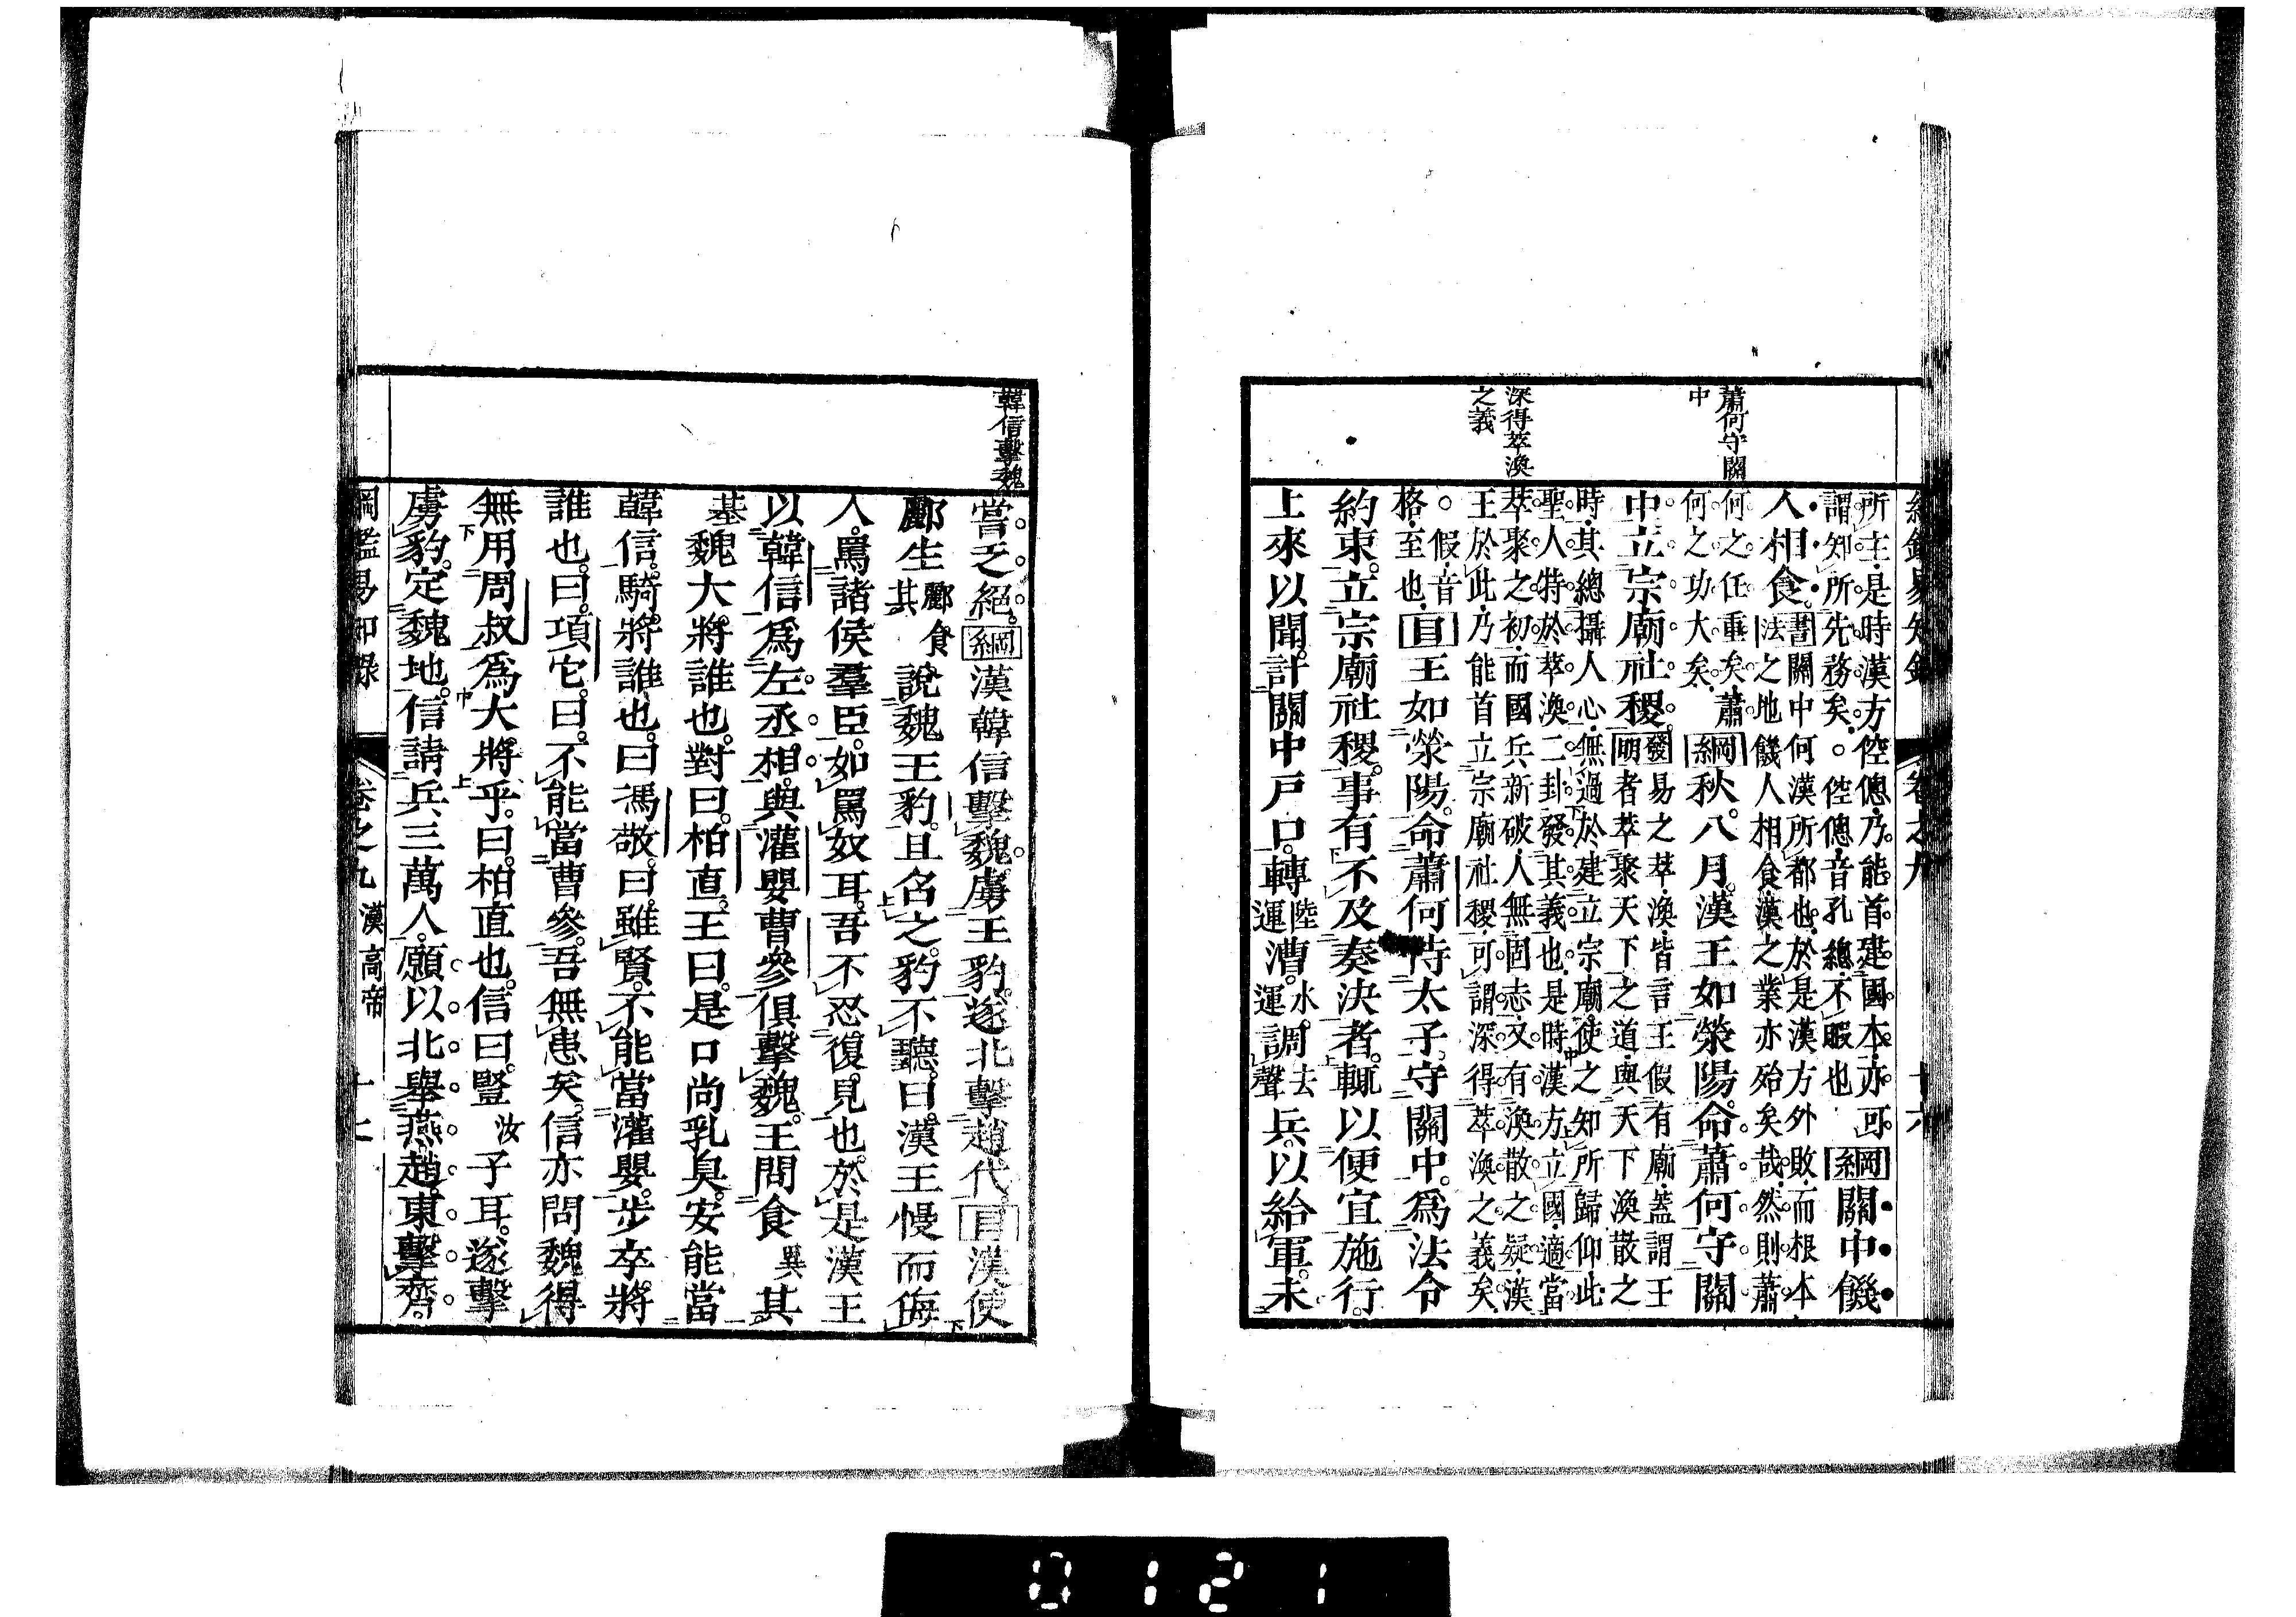 綱鑑易知錄 卷之九 十六
所主是時漢方倥傯乃能首建國本亦可
謂知所先務矣。倥傯音孔總不暇也
綱關中饑
人相食
書法關中何漢所都也於是漢方外敗而根本
之地饑人相食漢之業亦殆矣哉然則蕭
何之任重矣蕭
何之功大矣
綱秋八月漢王如滎陽命蕭何守關
蕭何守關
中
中立宗廟社稷
發明易之萃渙皆言王假有廟蓋謂王
者萃聚天下之道與天下渙散之
時其總攝人心無過於建立宗廟使之知所歸仰此
聖人特於萃渙二卦發其義也是時漢方立國適當
萃聚之初而國兵新破人無固志又有渙散之疑漢
王於此乃能首立宗廟社稷可謂深得萃渙之義矣
深得萃渙
之義
。假音
格至也
目王如滎陽命蕭何侍太子守關中爲法令
約束立宗廟社稷事有不及奏決者輒以便宜施行
上來以聞計關中戶口轉陸運漕水運調去聲兵以給軍未
嘗乏絕綱漢韓信擊魏虜王豹遂北擊趙代目漢使
韓信擊魏
酈生酈食其說魏王豹且召之豹不聽曰漢王慢而侮
人罵諸侯羣臣如罵奴耳吾不忍復見也於是漢王
以韓信爲左丞相與灌嬰曹參俱擊魏王問食異其
基魏大將誰也對曰柏直王曰是口尚乳臭安能當
韓信騎將誰也曰馮敬曰雖賢不能當灌嬰步卒將
誰也曰項它曰不能當曹參吾無患矣信亦問魏得
無用周叔爲大將乎曰柏直也信曰豎汝子耳遂擊
虜豹定魏地信請兵三萬人願以北舉燕趙東擊齊
綱鑑易知錄 卷之九 漢高帝